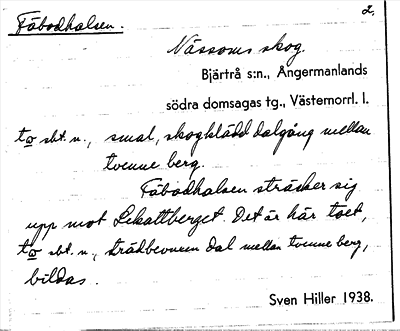 Fäbodhalsen. 2.
Nässoms skog.
Bjärtrå s:n., Ångermanlands
södra domsagas tg., Västernorrl. l.
to sbt. n., smal, skogklädd dalgång mellan
tvenne berg.
Fäbodhalsen sträcker sig
upp mot Lekattberget. Det är här toet,
to sbt. n., trädbevuxen dal mellan tvenne berg,
bildas.
Sven Hiller 1938.